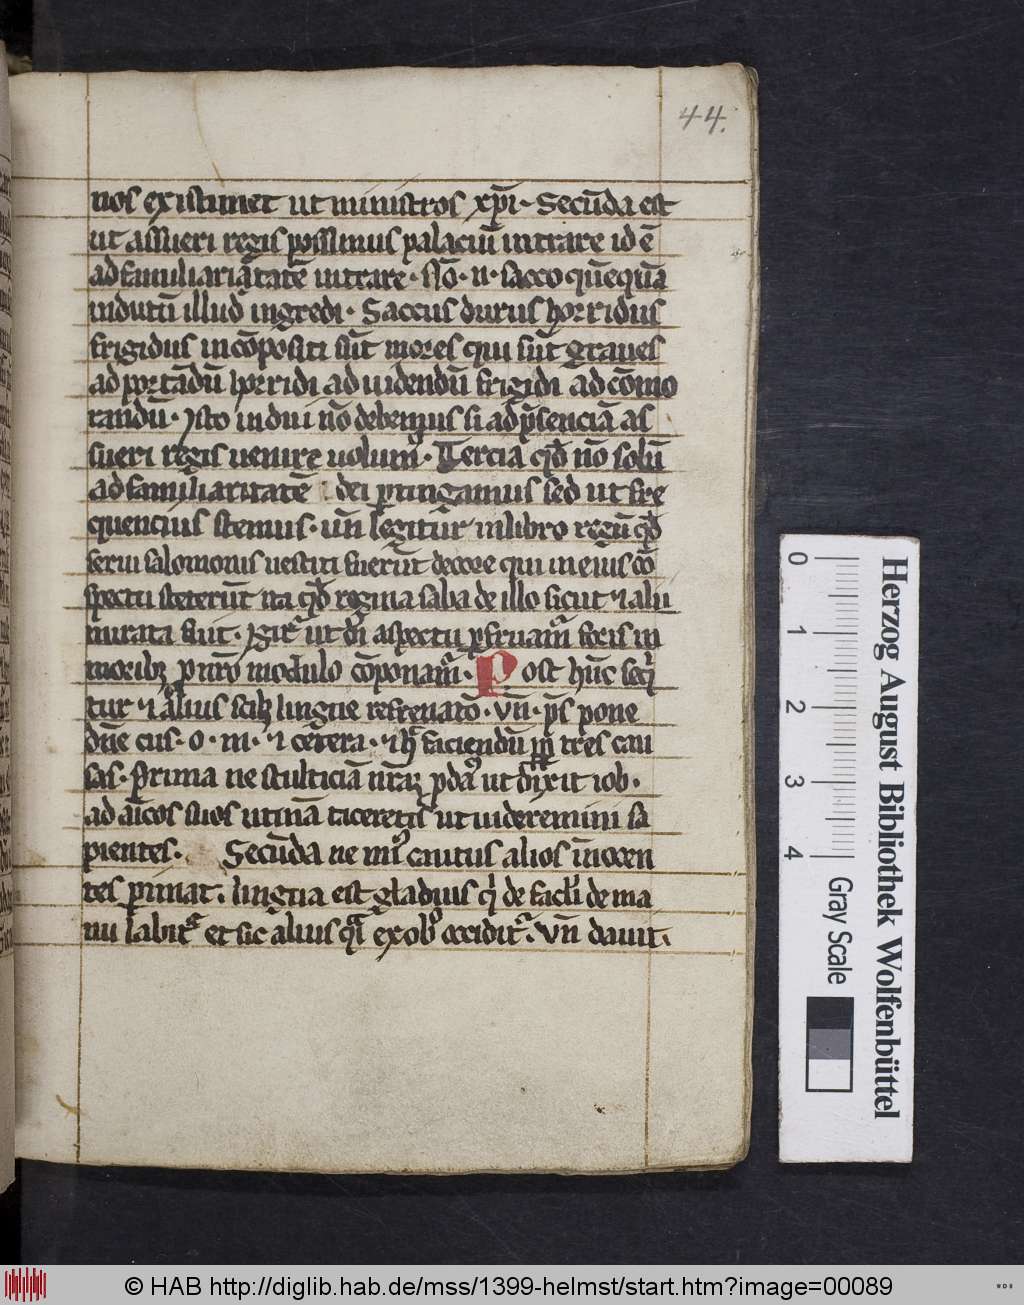 44.
nos existimet ut ministros xp̄i. Secūda est
ut assueri regis possimus palaciū intrare id ē
ad familiaritatē intrare. Nō. n. sacco quēquā
indutū illud ingredi. Saccus durus horridus
frigidus incōpositi sūt mores qui sūt graues
ad portādū horridi ad uidendū frigidi ad cōmo
randū. Isto indui nō debemus si ad p̄senciā as
sueri regis uenire uolum᷒. Tercia qd̄ nō solū
ad familiaritatē dei ꝑtingamus sed ut fre
quencius stemus. un̄ legitur in libro regū qd̄
serui salomonis uestiti fuerūt decore qui in eius cō
spectu steterūt ita qd̄ regina saba de illo sicut ⁊ alii
mirata fuit. Igit᷑ ut dn̄i aspectu ꝑfruam᷑ foris in
moribꝫ ꝓ nr̄o modulo cōponam᷑. Post hūc seq̄
tur ⁊ alius scilꝫ lingue refrenatō. Vn̄. ps̄ pone
dn̄e cus. o. m. ⁊ cetera. ⁊ h faciendū ꝓpt tres cau
sas. Prima ne stulticiā nr̄aꝝ ꝓdam᷒ ut dixit iob.
ad amīcos suos utinā taceretis ut uideremini sa
pientes. Secūda ne mucritus alios īnocen
tes ꝑimat. lingua est gladius q̄ de facili de ma
nu labit᷑ et sic alius occidit᷑. Vn̄ dauit.
Herzog August Bibliothek Wolfenbüttel
0 1 2 3 4 Gray Scale
© HAB http://diglib.hab.de/mss/1399-helmst/start.htm?image=00089